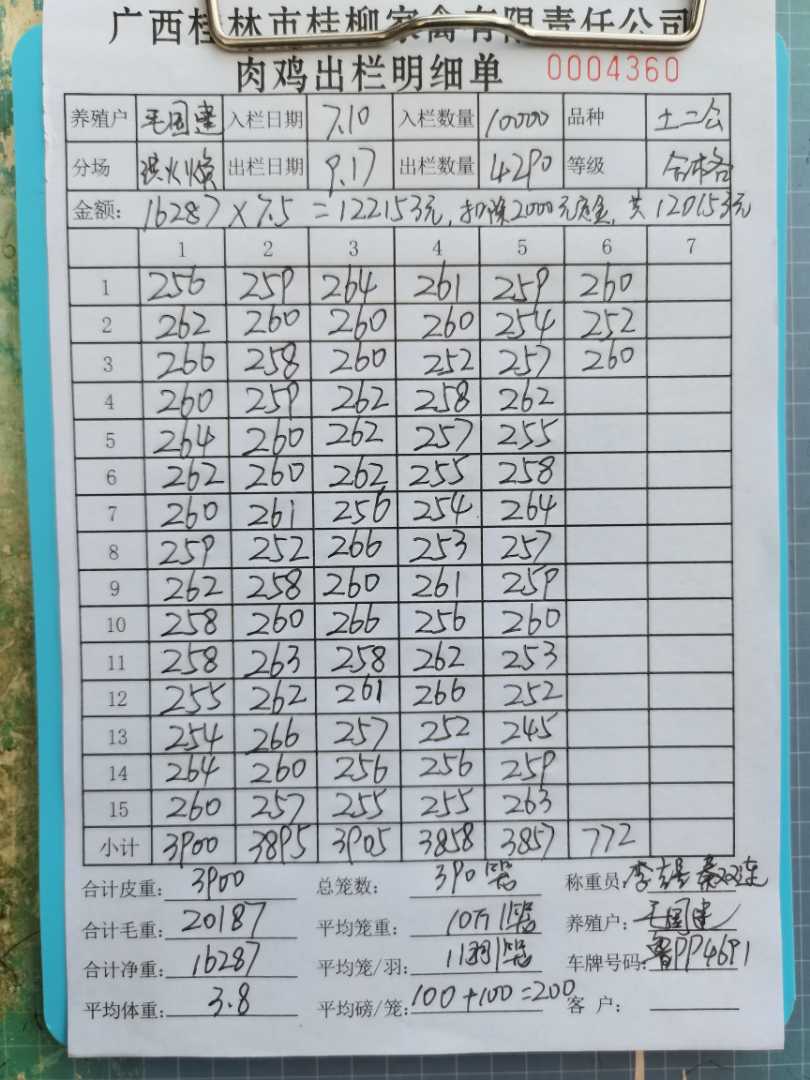 广西桂林市桂柳家禽有限责任公司
肉鸡出栏明细单 0004360
养殖户 毛国建 入栏日期 7.10 入栏数量 10000 品种 土二公
分场 出栏日期 9.17 出栏数量 4290 等级 合格
金额: 16287×7.5=122153元,扣除2000元定金,共120153元
1 2 3 4 5 6 7
1 256 259 264 261 259 260
2 262 260 260 260 254 252
3 266 258 260 252 257 260
4 260 259 262 258 262
5 264 260 262 257 255
6 262 260 262 255 258
7 260 261 256 254 264
8 259 252 266 253 257
9 262 258 260 261 259
10 258 260 266 256 260
11 258 263 258 262 253
12 255 262 261 266 252
13 254 266 257 252 245
14 264 260 256 256 259
15 260 257 255 255 263
小计 3900 3895 3905 3858 3857 772
合计皮重: 3900 总笼数: 390笼 称重员:
合计毛重: 20187 平均笼重: 10斤/笼 养殖户: 毛国建
合计净重: 16287 平均笼/羽: 11羽/笼 车牌号码: 鲁PP4691
平均体重: 3.8 平均磅/笼: 100+100=200 客 户: